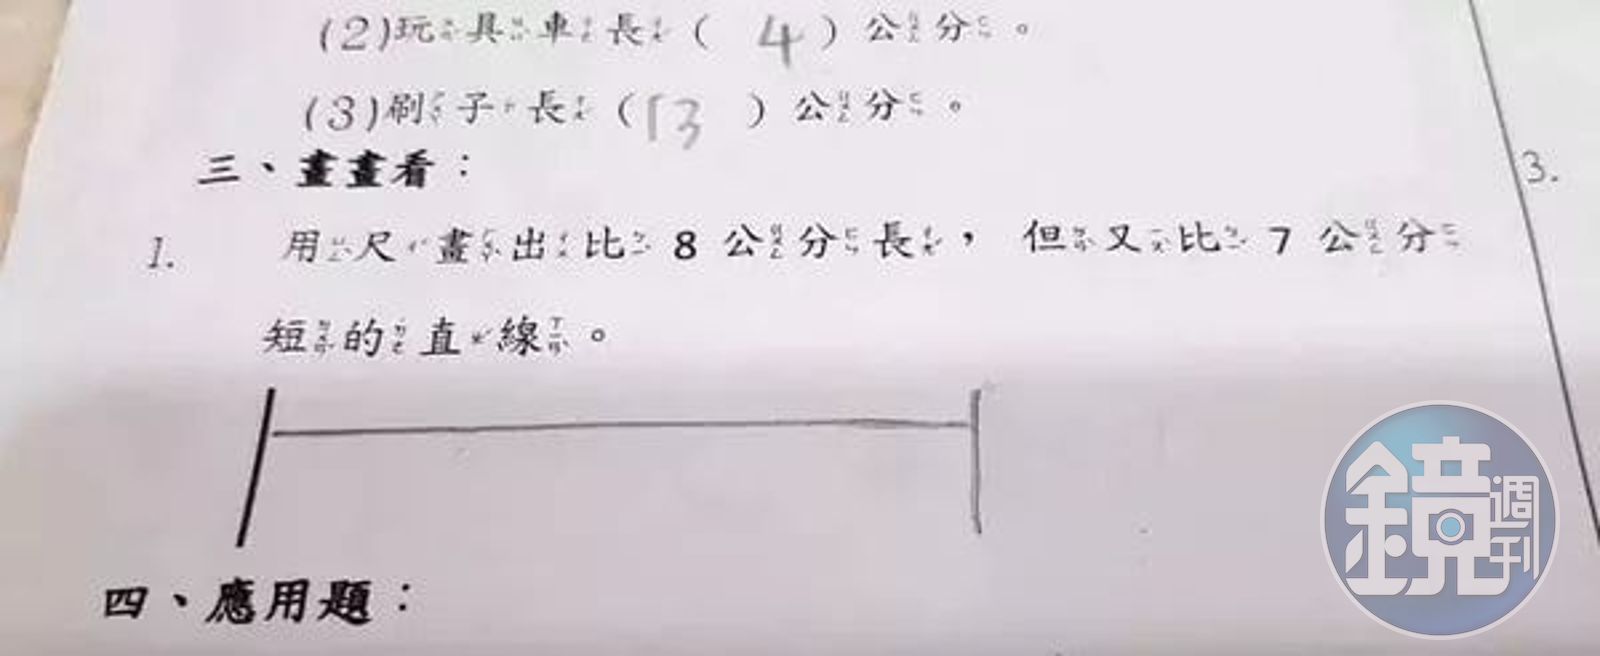 (2)玩具車長( 4 )公分。
(3)刷子長(13 )公分。
三、畫畫看：
1. 用尺畫出比 8 公分長， 但又比 7 公分
短的直線。
四、應用題：
3.
鏡週刊